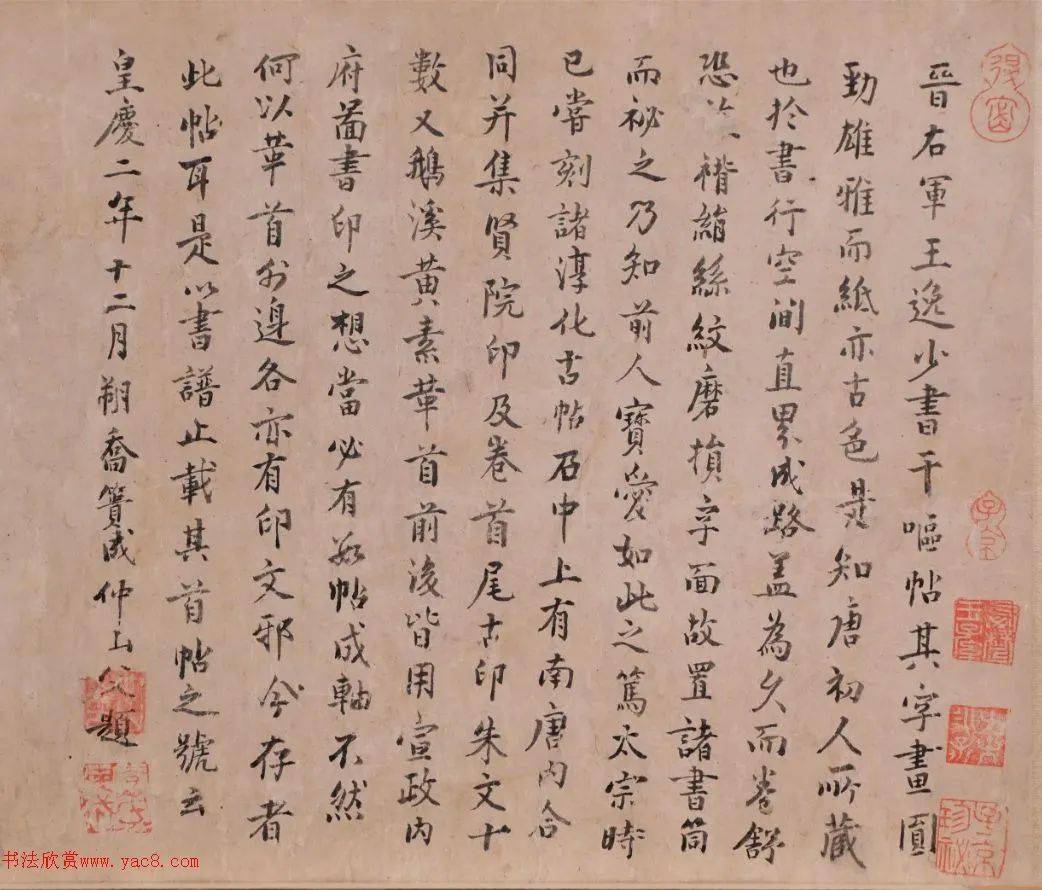 晉右軍王逸少書干嘔帖其字畫圓
勁雄雅而紙亦古色是知唐初人所藏
也於書行空間直界成路蓋為久而卷舒
恐褙絹絲紋磨損字面故置諸書筒
而祕之乃知前人寶愛如此之篤太宗時
已嘗刻諸淳化古帖石中上有南唐內合
同并集賢院印及卷首尾古印朱文十
數又鵝溪黃素革首前後皆用宣政內
府啚書印之想當必有数帖成軸不然
何以革首外邊各亦有印文邪今存者
此帖耳是以書譜止載其首帖之號云
皇慶二年十二月朔喬簣成仲山父題
书法欣赏www.yac8.com